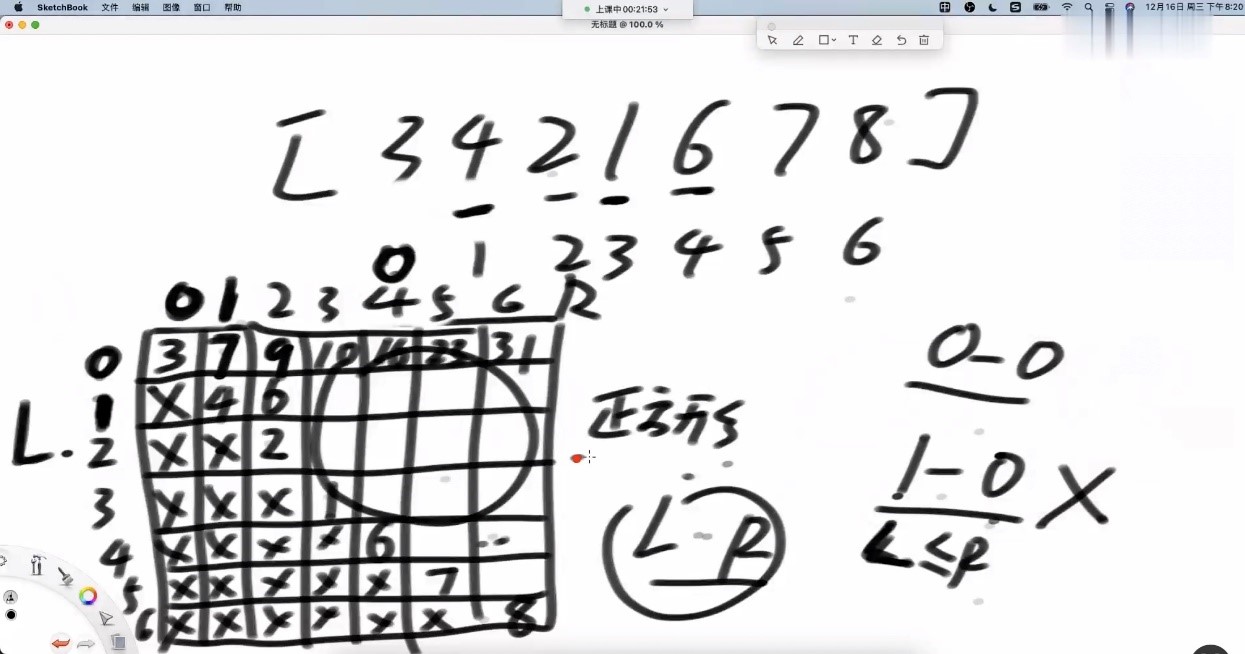 SketchBook 文件 编辑 图像 窗口 帮助
上课中 00:21:53
12月16日 周三 下午8:20
无标题 @ 100.0 %
T
[ 3 4 2 1 6 7 8 ]
0 1 2 3 4 5 6
0 1 2 3 4 5 6 R
0 3 7 9 10 16 23 31
L. 1 X 4 6
2 X X 2
3 X X X 1
4 X X X X 6
5 X X X X X 7
6 X X X X X X 8
正方形
L - R
0-0
1-0 X
L≤R